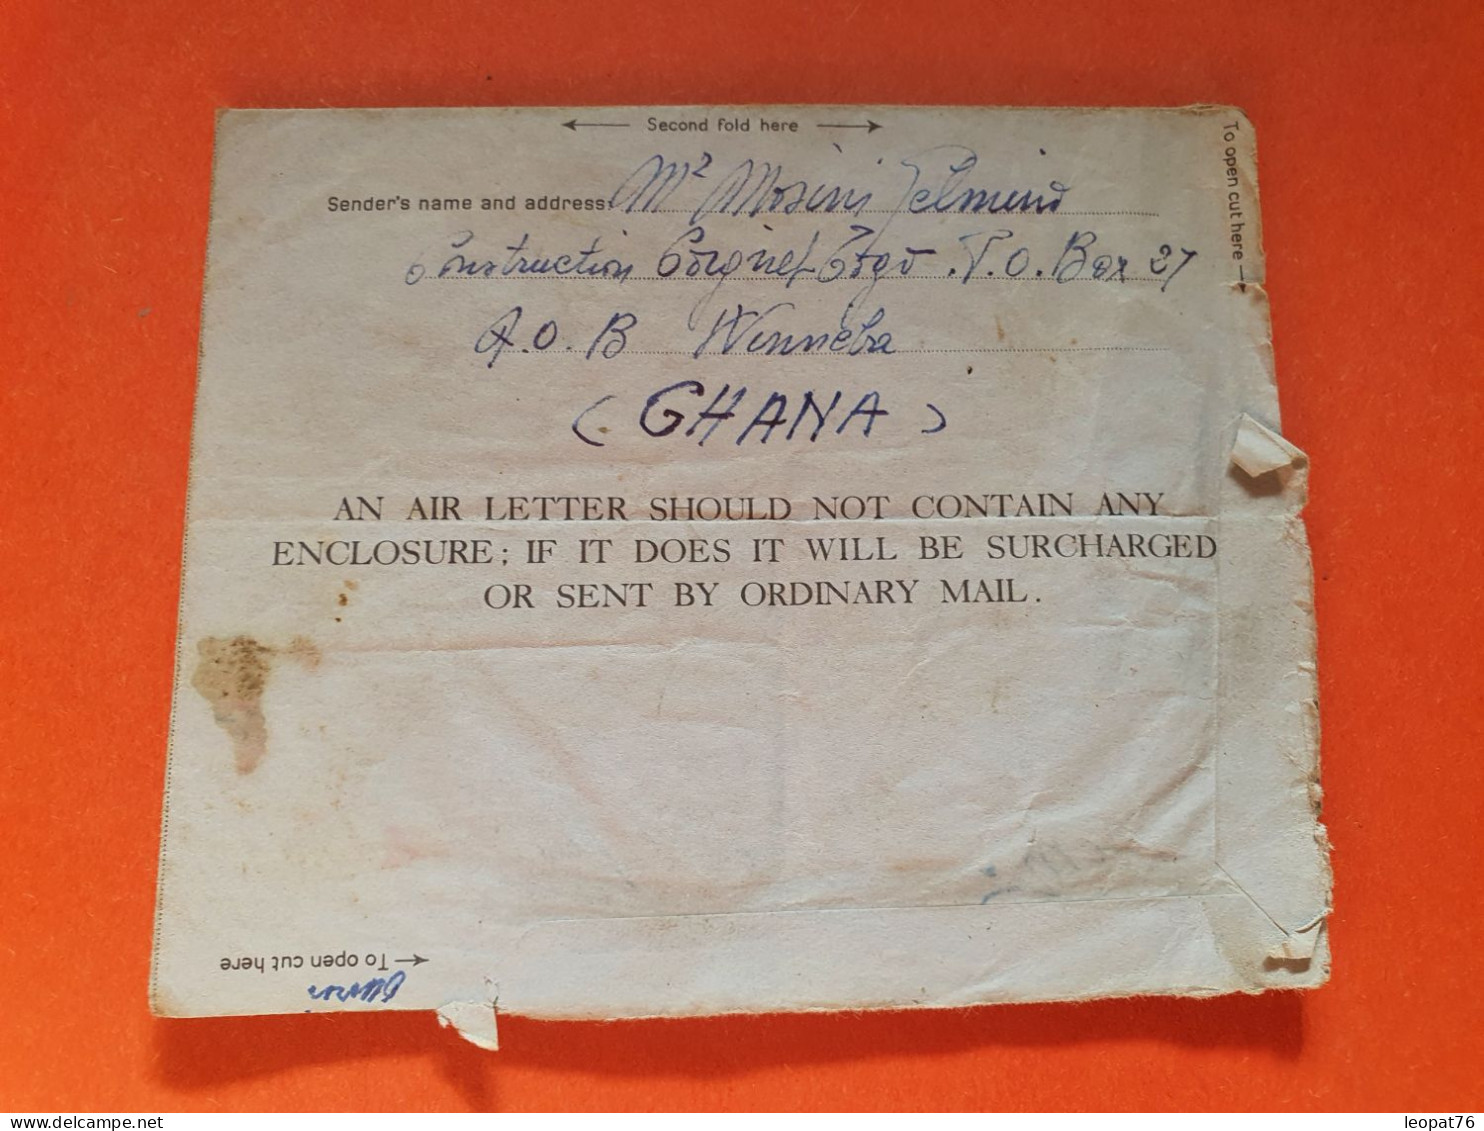 ← Second fold here →
To open cut here →
Sender's name and address: Mr Mosini
Construction P.O. Box 27
A.O.B Winneba
(GHANA)
AN AIR LETTER SHOULD NOT CONTAIN ANY
ENCLOSURE; IF IT DOES IT WILL BE SURCHARGED
OR SENT BY ORDINARY MAIL.
To open cut here →
leopat76